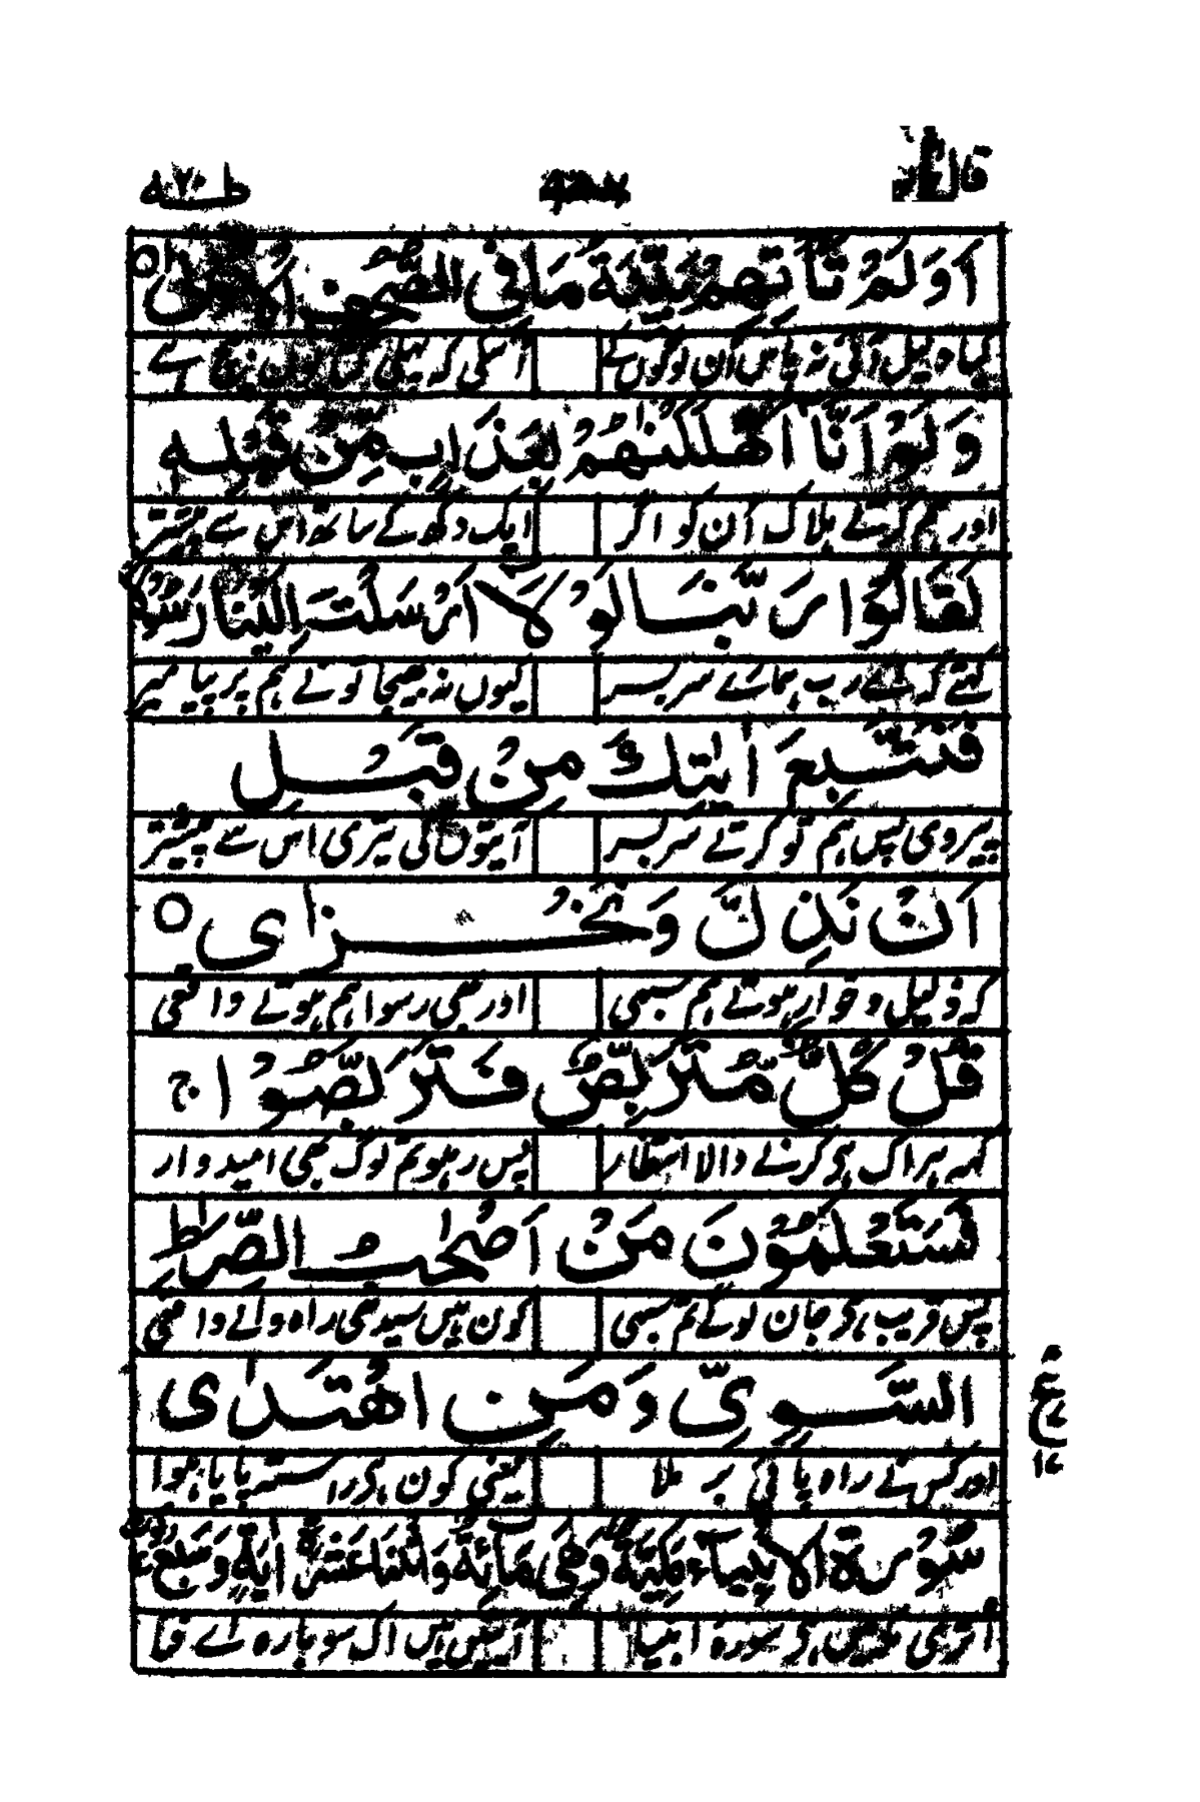 قال
طٰهٰ ۲۰
اَوَلَمْ تَاْتِهِمْ بَيِّنَةُ مَا فِي الصُّحُفِ الْاُوْلٰى
کیا دلیل آئی نہ پاس اُن لوگوں کے اُسکی کہ پہلی
وَلَوْ اَنَّا اَهْلَكْنٰهُمْ بِعَذَابٍ مِّنْ قَبْلِهٖ
اور ہم کرتے ہلاک اُن کو اگر ایک دکھ کے ساتھ اس سے پیشتر
لَقَالُوْا رَبَّنَا لَوْلَا اَرْسَلْتَ اِلَيْنَا رَسُوْلًا
کہتے کہ اے رب ہمارے سربسر کیوں نہ بھیجا تو نے ہم پر پیامبر
فَنَتَّبِعَ اٰيٰتِكَ مِنْ قَبْلِ
پیروی پس ہم تو کرتے سربسر آیتوں کی تیری اس سے پیشتر
اَنْ نَّذِلَّ وَنَخْزٰى ○
کہ ذلیل و خوار ہوتے ہم سبھی اور بھی رسوا ہم ہوتے واقعی
قُلْ كُلٌّ مُّتَرَبِّصٌ فَتَرَبَّصُوْا ج
کہہ ہر اک ہے کرنے والا انتظار پس رہو تم لوگ بھی امیدوار
فَسَتَعْلَمُوْنَ مَنْ اَصْحٰبُ الصِّرَاطِ
پس قریب ہے جان لو گے تم سبھی کون ہیں سیدھی راہ والے واقعی
السَّوِيِّ وَمَنِ اهْتَدٰى
اور کس نے راہ پائی بر ملا یعنی کون ہے راستہ پایا ہوا
ع
سُوْرَةُ الْاَنْبِيَآءِ مَكِّيَّةٌ وَّهِيَ مِائَةٌ وَّاثْنَتَا عَشْرَةَ اٰيَةً وَّسَبْعُ
اتری مکہ میں ہے سورۂ انبیا آیتیں ہیں اک سو بارہ اے فتا